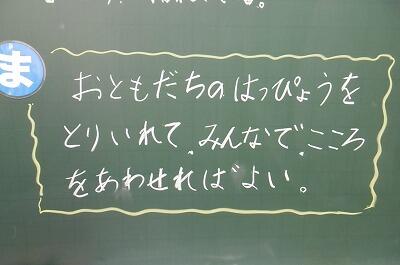 ま
おともだちのはっぴょうを
とりいれて、みんなで、こころ
をあわせればよい。